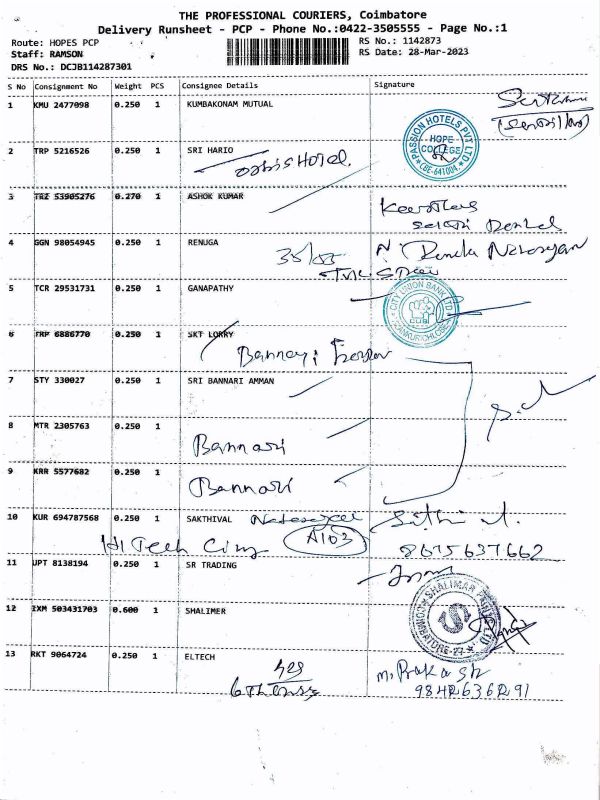 THE PROFESSIONAL COURIERS, Coimbatore
Delivery Runsheet - PCP - Phone No.:0422-3505555 - Page No.:1
Route: HOPES PCP
RS No.: 1142873
Staff: RAMSON
RS Date: 28-Mar-2023
DRS No.: DCJB114287301
S No Consignment No Weight PCS Consignee Details Signature
1 KMU 2477098 0.250 1 KUMBAKONAM MUTUAL
PASSION HOTELS PVT LTD
HOPE
COLLEGE
CBE-641004.
2 TRP 5216526 0.250 1 SRI HARIO
HOTEL.
3 TRZ 53905276 0.270 1 ASHOK KUMAR
4 GGN 98054945 0.250 1 RENUGA
35/55
N. Renuka Narayan
5 TCR 29531731 0.250 1 GANAPATHY
CITY UNION BANK LTD
6 TRP 6886770 0.250 1 SKT LORRY
Bannari
7 STY 330027 0.250 1 SRI BANNARI AMMAN
8 MTR 2305763 0.250 1
Bannari
9 KRR 5577682 0.250 1
Bannari
10 KUR 694787568 0.250 1 SAKTHIVAL
Hi Tech City A103
8675637662
11 JPT 8138194 0.250 1 SR TRADING
12 IXM 503431703 0.600 1 SHALIMER
SHALIMAR PAINTS LTD
COIMBATORE-27
13 RKT 9064724 0.250 1 ELTECH
M. Prakash
9842636291